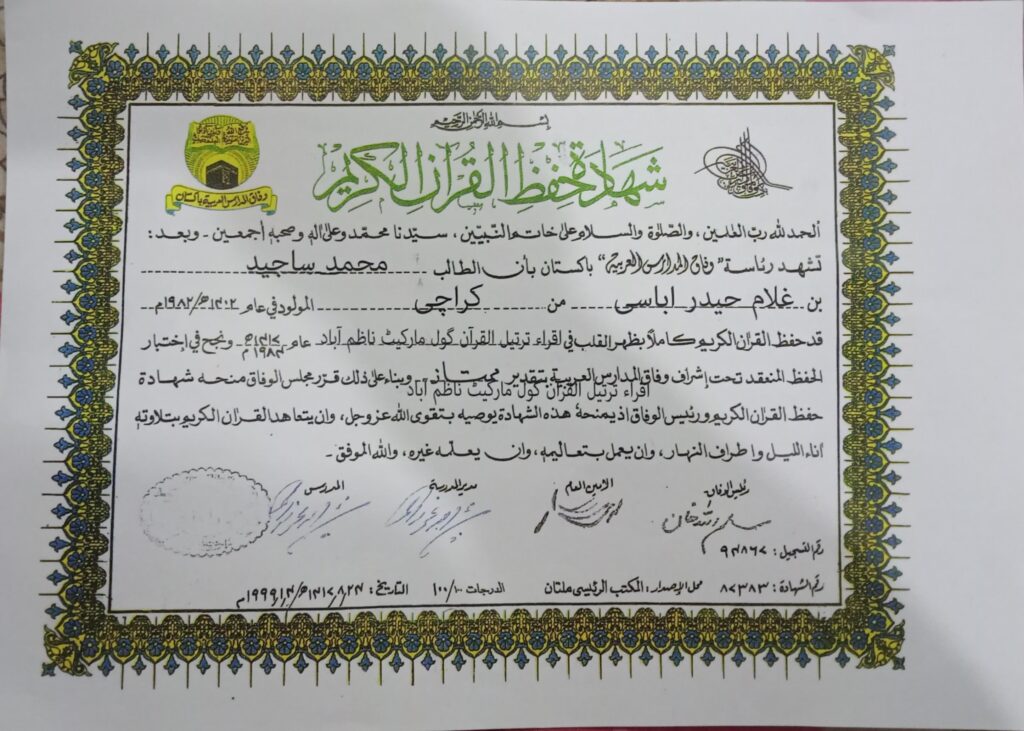 بسم الله الرحمن الرحيم
شهادة حفظ القرآن الكريم
وفاق المدارس العربية باكستان
الحمد لله رب العلمين، والصلوة والسلام على خاتم النبيين، سيدنا محمد وعلى اله وصحبه أجمعين ـ وبعد:
تشهد رئاسة "وفاق المدارس العربية" باكستان بأن الطالب محمد ساجيد
بن غلام حيدر اباسى من كراچى المولود في عام ۱۴۰۲ھ/۱۹۸۲م
قد حفظ القران الكريم كاملاً بظهر القلب في اقراء ترتيل القرآن گول مارکیٹ ناظم آباد عام ونجح في اختبار
الحفظ المنعقد تحت إشراف وفاق المدارس العربية بتقدير ممتاز وبناء على ذلك قرر مجلس الوفاق منحه شهادة
اقراء ترتيل القرآن گول مارکیٹ ناظم آباد
حفظ القران الكريم ورئيس الوفاق اذ يمنحه هذه الشهادة يوصيه بتقوى الله عز وجل، وان يتعاهد القران الكريم بتلاوته
اناء الليل واطراف النهار، وان يعمل بتعاليمه، وان يعلمه غيره، والله الموفق ـ
رئيس الوفاق الأمين العام مدير المدرسة المدرس
رقم التسجيل: ۹۴۸۶۷
رقم الشهادة: ۸۷۳۸۳ محل الإصدار: المكتب الرئيسى ملتان الدرجات ۱۰۰/ التاريخ: